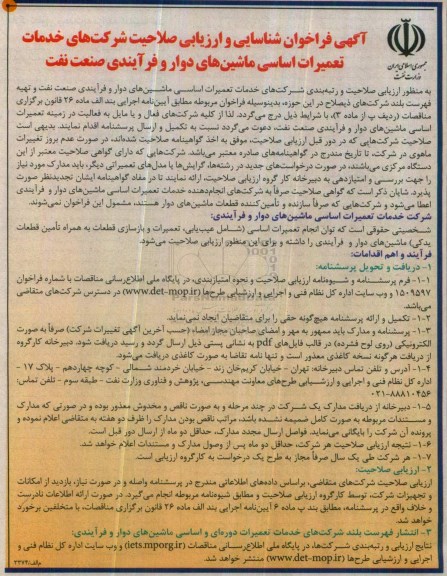 جمهوری اسلامی ایران
وزارت نفت
آگهی فراخوان شناسایی و ارزیابی صلاحیت شرکت‌های خدمات
تعمیرات اساسی ماشین‌های دوار و فرآیندی صنعت نفت
به منظور ارزیابی صلاحیت و رتبه‌بندی شرکت‌های خدمات تعمیرات اساسی ماشین‌های دوار و فرآیندی صنعت نفت و تهیه
فهرست بلند شرکت‌های ذیصلاح در این حوزه، بدینوسیله فراخوان مربوطه مطابق آیین‌نامه اجرایی بند الف ماده ۲۶ قانون برگزاری
مناقصات (ردیف پ از ماده ۳)، با شرایط ذیل درج می‌گردد. لذا از کلیه شرکت‌های فعال و یا مایل به فعالیت در زمینه تعمیرات
اساسی ماشین‌های دوار و فرآیندی صنعت نفت، دعوت می‌گردد نسبت به تکمیل و ارسال پرسشنامه اقدام نمایند. بدیهی است
صلاحیت شرکت‌هایی که در دور قبل ارزیابی صلاحیت، موفق به اخذ گواهینامه صلاحیت شده‌اند، در صورت عدم بروز تغییرات
ماهوی در شرکت، تا تاریخ مندرج در گواهینامه‌های صادره معتبر می‌باشد. شرکت‌هایی که دارای گواهی صلاحیت معتبر از این
دستگاه مرکزی می‌باشند، در صورت درخواست‌های جدید در رشته‌ها، گرایش‌ها یا مدل‌های تعمیراتی دیگر، باید مدارک مورد نیاز
را جهت بررسی و امتیازدهی به دبیرخانه کار گروه ارزیابی صلاحیت، ارائه نمایند تا در مفاد گواهینامه ایشان تجدیدنظر صورت
پذیرد. شایان ذکر است که گواهی صلاحیت صرفاً به شرکت‌های انجام‌دهنده خدمات تعمیرات اساسی ماشین‌های دوار و فرآیندی
اعطا می‌شود و شرکت‌هایی که صرفاً سازنده و تأمین‌کننده قطعات ماشین‌های دوار هستند، مشمول این فراخوان نمی‌شوند.
شرکت خدمات تعمیرات اساسی ماشین‌های دوار و فرآیندی:
شخصیتی حقوقی است که توان انجام تعمیرات اساسی (شامل عیب‌یابی، تعمیرات و بازسازی قطعات به همراه تأمین قطعات
یدکی) ماشین‌های دوار و فرآیندی را داشته و برای این منظور ارزیابی صلاحیت می‌شود.
فرآیند و اهم اقدامات:
۱- دریافت و تحویل پرسشنامه:
۱-۱- فرم پرسشنامه و شیوه‌نامه ارزیابی صلاحیت و نحوه امتیازبندی، در پایگاه ملی اطلاع‌رسانی مناقصات با شماره فراخوان
۱۵۰۹۵۹۷ و وب سایت اداره کل نظام فنی و اجرایی و ارزشیابی طرح‌ها (www.det-mop.ir) در دسترس شرکت‌های متقاضی
می‌باشد.
۱-۲- تکمیل و ارائه پرسشنامه هیچ‌گونه حقی را برای متقاضیان ایجاد نمی‌نماید.
۱-۳- پرسشنامه و مدارک باید ممهور به مهر و امضای صاحبان مجاز امضاء (حسب آخرین آگهی تغییرات شرکت) صرفاً به صورت
الکترونیکی (روی لوح فشرده) در قالب فایل‌های pdf به نشانی پستی ذیل ارسال گردد و رسید دریافت شود. دبیرخانه کارگروه
از دریافت هرگونه نسخه کاغذی معذور است و تنها نامه تقاضا به صورت کاغذی دریافت می‌شود.
۱-۴- آدرس و تلفن تماس دبیرخانه: تهران - خیابان کریم‌خان زند - خیابان خردمند شمالی - کوچه چهاردهم - پلاک ۱۷ -
اداره کل نظام فنی و اجرایی و ارزشیابی طرح‌های معاونت مهندسی، پژوهش و فناوری وزارت نفت - طبقه سوم - تلفن تماس:
۰۲۱-۸۸۸۱۰۴۵۶
۱-۵- دبیرخانه از دریافت مدارک یک شرکت در چند مرحله و به صورت ناقص و مخدوش معذور بوده و در صورتی که مدارک
و مستندات مربوطه به صورت کامل ضمیمه نشده باشد، مراتب ناقص بودن مدارک را ظرف دو هفته به متقاضی اعلام نموده و
پرونده آن شرکت را بایگانی می‌نماید. فواصل ارسال مجدد مدارک، حداقل دو ماه از ارسال دور قبل است.
۱-۶- نتیجه ارزیابی صلاحیت هر شرکت، حداقل دو ماه پس از وصول مدارک و مستندات اعلام خواهد شد.
۱-۷- هر شرکت طی یک سال صرفاً مجاز به طرح یک درخواست به کارگروه ارزیابی است.
۲- ارزیابی صلاحیت:
ارزیابی صلاحیت شرکت‌های متقاضی، براساس داده‌های اطلاعاتی مندرج در پرسشنامه واصله و در صورت نیاز، بازدید از امکانات
و تجهیزات شرکت، توسط کارگروه ارزیابی صلاحیت و مطابق شیوه‌نامه مربوطه انجام می‌گیرد. در صورت ارائه اطلاعات نادرست
و خلاف واقع در پرسشنامه، مطابق بند پ ماده ۶ آیین‌نامه اجرایی بند الف ماده ۲۶ قانون برگزاری مناقصات، با متخلفین برخورد
خواهد شد.
۳- انتشار فهرست بلند شرکت‌های خدمات تعمیرات دوره‌ای و اساسی ماشین‌های دوار و فرآیندی:
نتایج ارزیابی و رتبه‌بندی شرکت‌ها، در پایگاه ملی اطلاع‌رسانی مناقصات (iets.mporg.ir) و وب سایت اداره کل نظام فنی و
اجرایی و ارزشیابی طرح‌ها (www.det-mop.ir) منتشر خواهد شد.